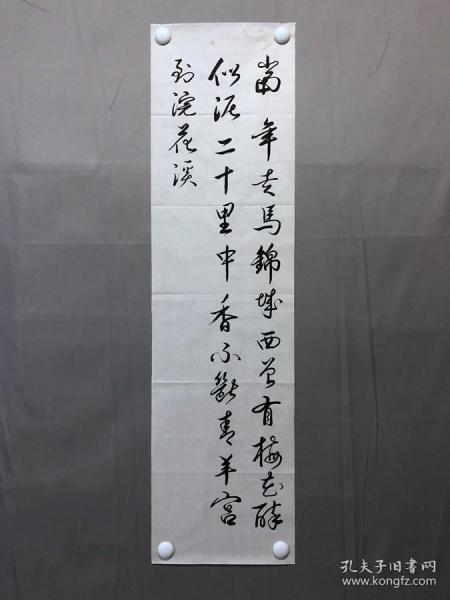 當年走馬錦城西曾有梅花醉
似泥二十里中香不斷青羊宮
到浣花溪
孔夫子旧书网
www.kongfz.com